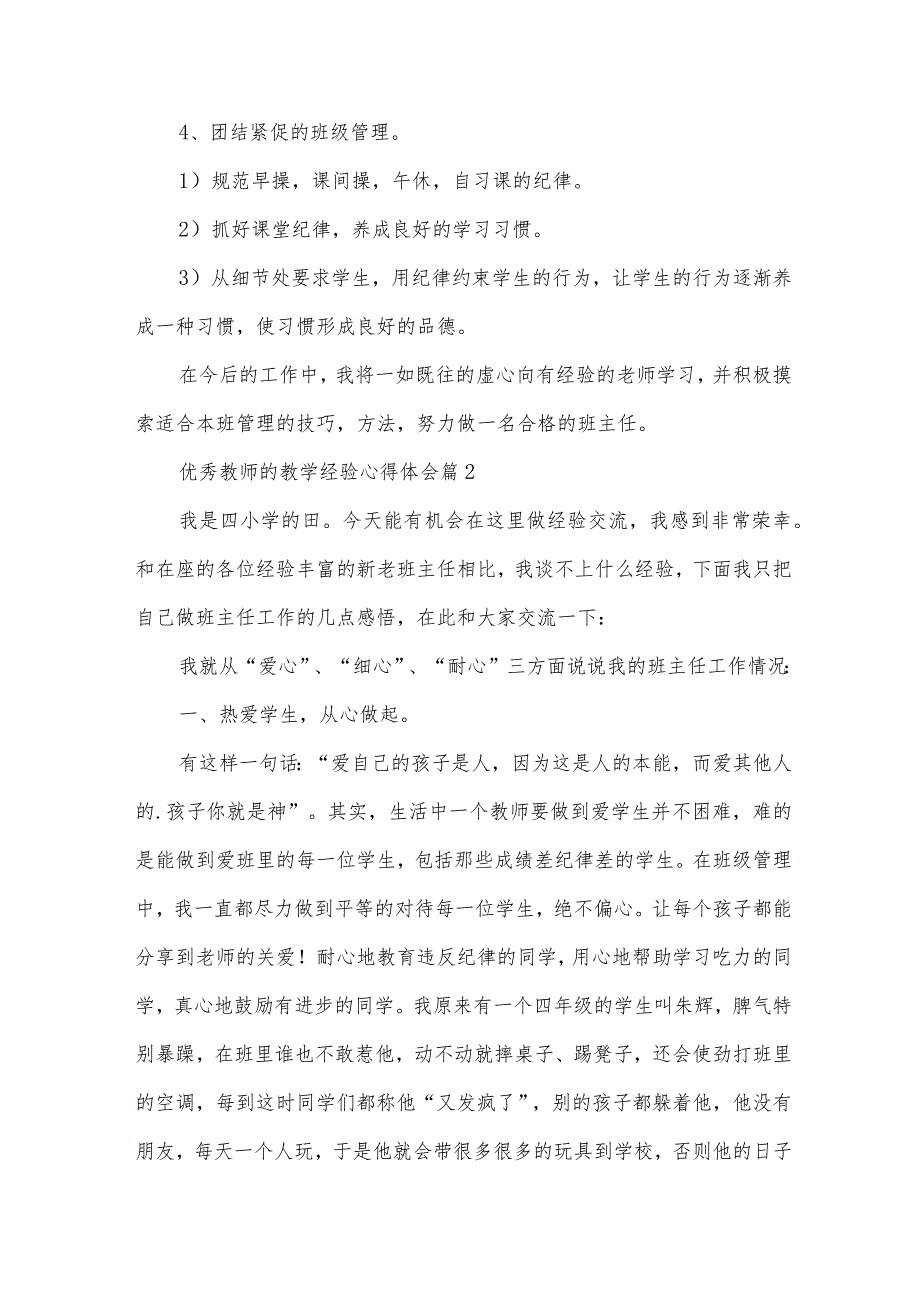 4、团结紧促的班级管理。
1）规范早操，课间操，午休，自习课的纪律。
2）抓好课堂纪律，养成良好的学习习惯。
3）从细节处要求学生，用纪律约束学生的行为，让学生的行为逐渐养
成一种习惯，使习惯形成良好的品德。
在今后的工作中，我将一如既往的虚心向有经验的老师学习，并积极摸
索适合本班管理的技巧，方法，努力做一名合格的班主任。
优秀教师的教学经验心得体会篇2
我是四小学的田。今天能有机会在这里做经验交流，我感到非常荣幸。
和在座的各位经验丰富的新老班主任相比，我谈不上什么经验，下面我只把
自己做班主任工作的几点感悟，在此和大家交流一下：
我就从“爱心”、“细心”、“耐心”三方面说说我的班主任工作情况：
一、热爱学生，从心做起。
有这样一句话：“爱自己的孩子是人，因为这是人的本能，而爱其他人
的.孩子你就是神”。其实，生活中一个教师要做到爱学生并不困难，难的
是能做到爱班里的每一位学生，包括那些成绩差纪律差的学生。在班级管理
中，我一直都尽力做到平等的对待每一位学生，绝不偏心。让每个孩子都能
分享到老师的关爱！耐心地教育违反纪律的同学，用心地帮助学习吃力的同
学，真心地鼓励有进步的同学。我原来有一个四年级的学生叫朱辉，脾气特
别暴躁，在班里谁也不敢惹他，动不动就摔桌子、踢凳子，还会使劲打班里
的空调，每到这时同学们都称他“又发疯了”，别的孩子都躲着他，他没有
朋友，每天一个人玩，于是他就会带很多很多的玩具到学校，否则他的日子